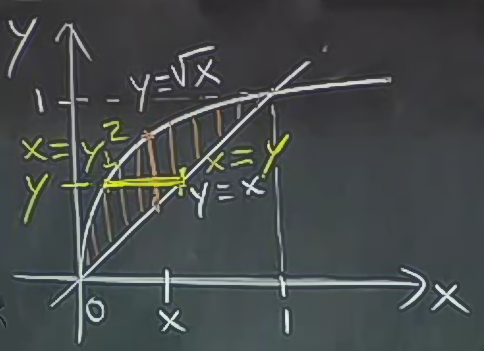 y
1
y = √x
x = y²
x = y
y
y = x
0
x
1
x